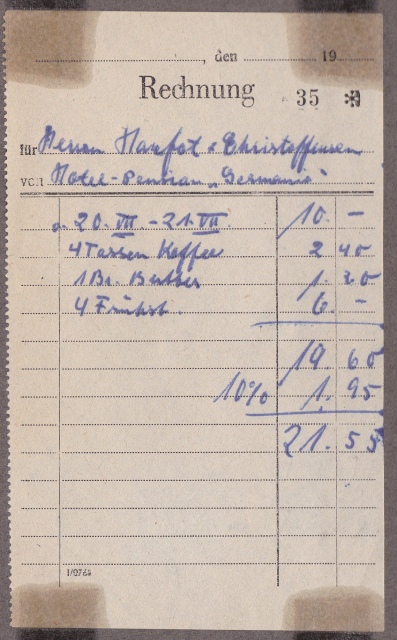 , den 19
Rechnung 35 ✻
für Herrn & Christoffersen
von Hotel-Pension „Germania"
20. VII - 21. VII 10. -
4 Tassen Kaffee 2 40
1 Br. Butter 1. 20
4 Frühst. 6. -
19. 60
10% 1. 95
21. 55
1/0764